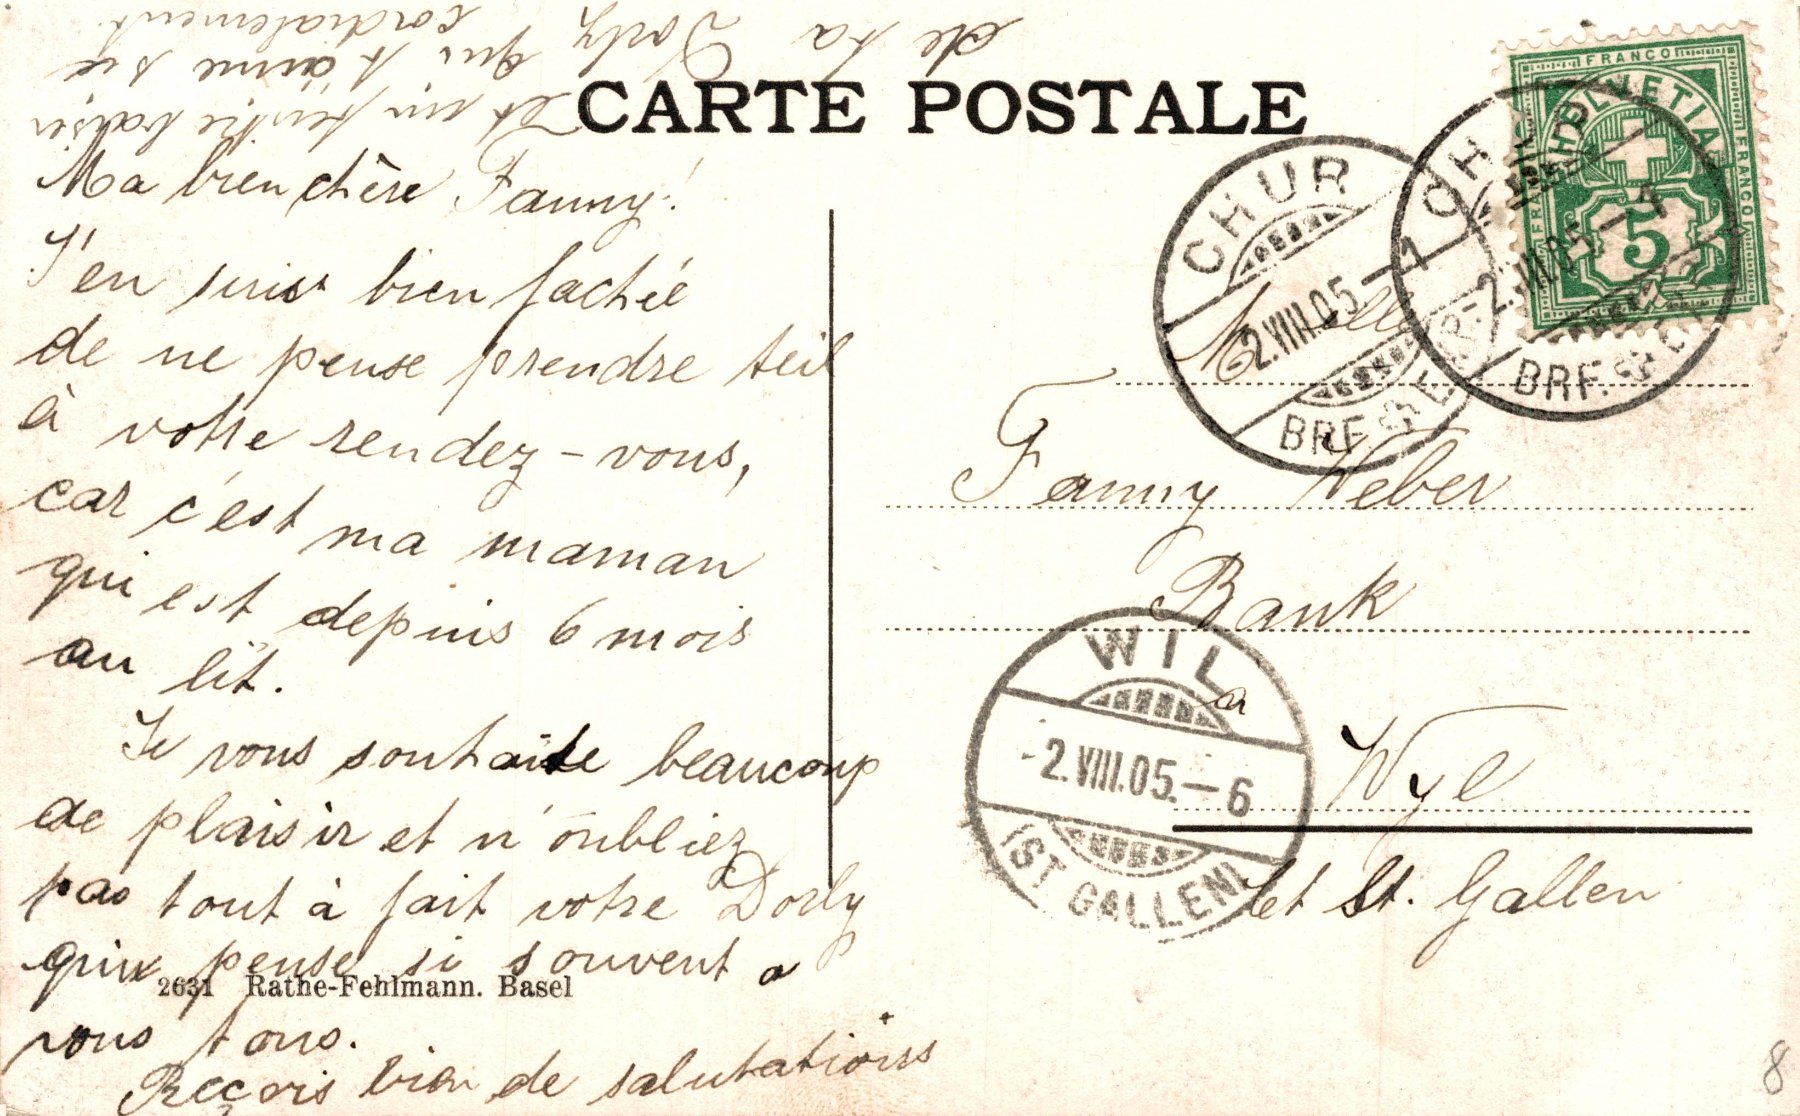 CARTE POSTALE
Ma bien chère Fanny!
J'en suis bien fachée
de ne peuse prendre
à votre rendez-vous,
car c'est ma maman
qui est depuis 6 mois
au lit.
Je vous souhaite beaucoup
de plaisir et n'oubliez
pas tout à fait votre Dorly
qui pense si souvent a
vous tous.
Reçois bien de salutations
et un tendre baiser
de ta Dorly qui t'aime
cordialement.
2631 Rathe-Fehlmann. Basel
FRANCO
HELVETIA
FRANCO
FRANCO
5
CHUR
2.VIII.05-1
BRF.
CH
2.VIII.05
BRF.
Fanny Weber
Bank
a
Wyl
Ct St. Gallen
WIL
-2.VIII.05.-6
(ST GALLEN)
8